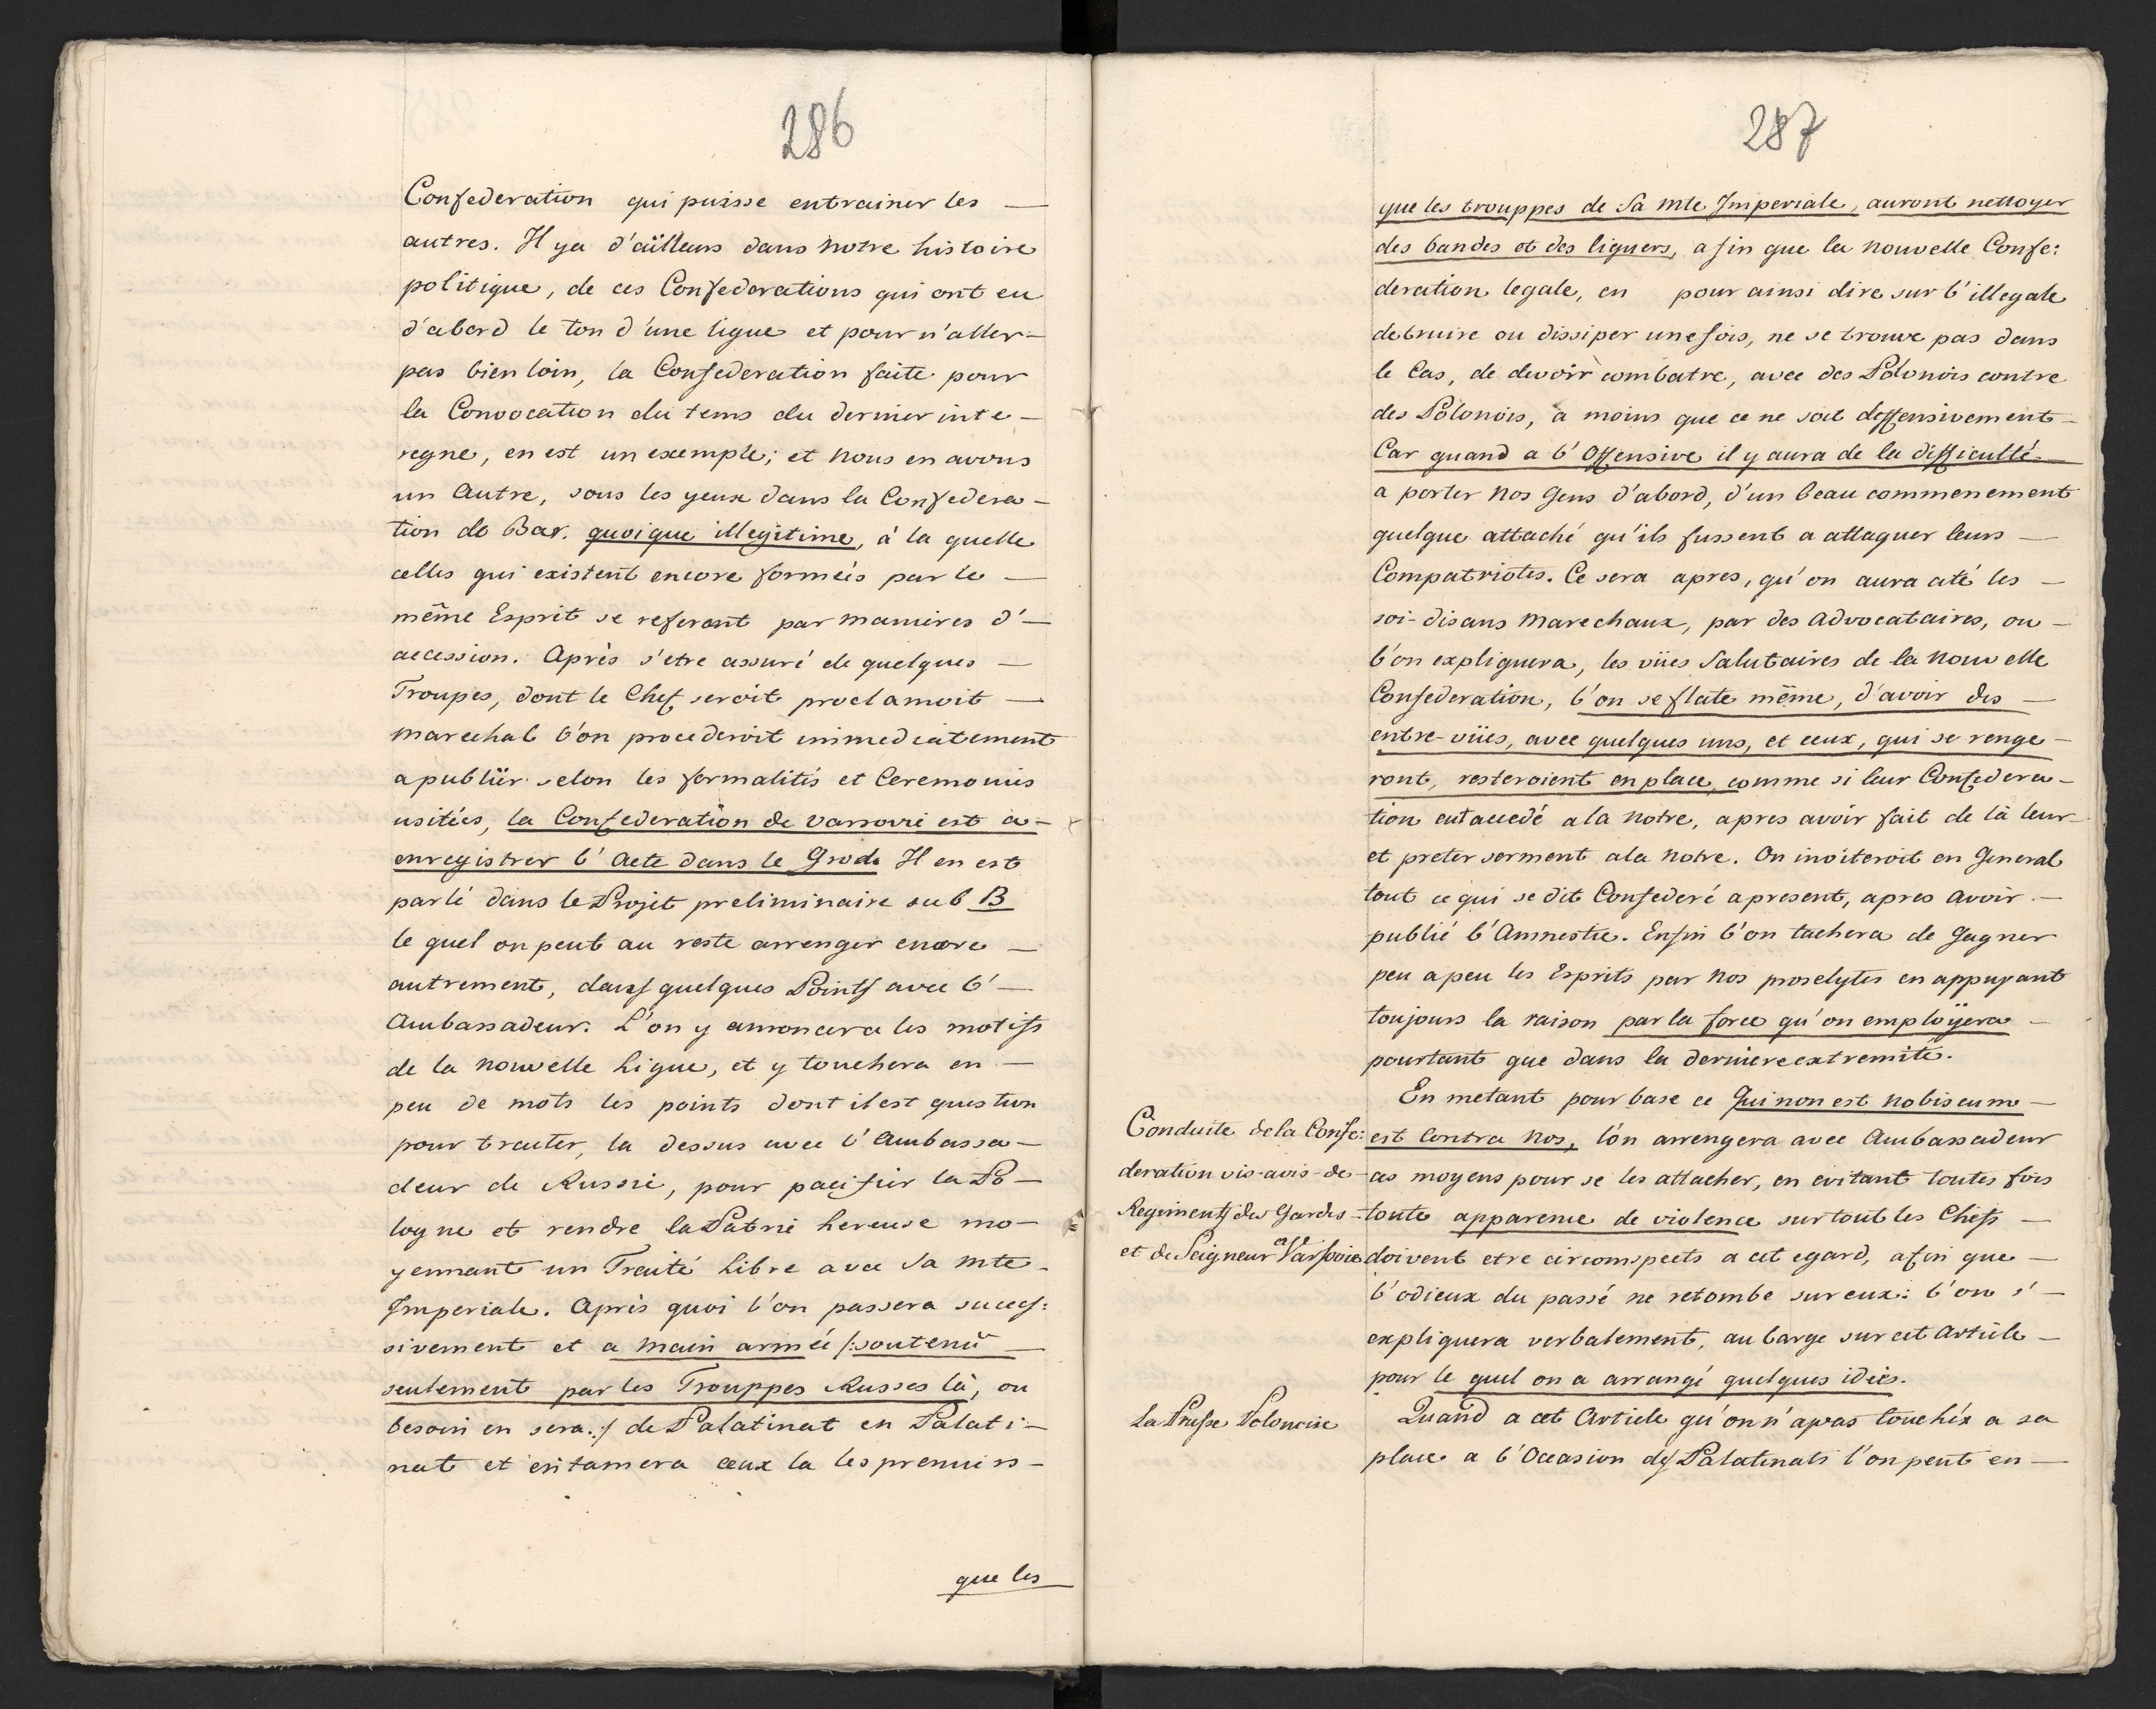 286
Confederation qui puisse entrainer les —
autres. Il ya d'aïlleurs dans notre histoire
politique, de ces Confederations qui ont eu
d'abord le ton d'une ligue et pour n'aller-
pas bien loin, la Confederation faite pour
la Convocation du tems du dernier inte-
regne, en est un exemple; et nous en avons
un Autre, sous les yeux dans la Confedera-
tion de Bar. quoique illegitime, à la quelle
celles qui existent encore formées par le —
même Esprit se referent par manieres d'—
accession. Après s'etre assuré de quelques —
Troupes, dont le Chef seroit proclamoit —
marechal l'on procederoit immediatement
a publiïr selon les formalités et Ceremonies
usitées, la Confederation de Varsovie est a-
enregistrer l'Acte dans le Grode Il en est
parlé dans le Projet preliminaire sub B
le quel on peut au reste arrenger encore —
autrement, dans quelques Points avec l'—
Ambassadeur. L'on y annoncera les motifs
de la nouvelle Ligue, et y touchera en —
peu de mots les points dont il est question
pour traiter, la dessus avec l'Ambassa-
deur de Russie, pour pacifiir la Po-
logne et rendre la Patrie hereuse mo-
yennant un Traité Libre avec Sa Mte-
Imperiale. Après quoi l'on passera succes:
sivement et a main armée /:soutenü —
seulement par les Trouppes Russes là, ou
besoin en sera:/ de Palatinat en Palati-
nat et entamera ceux la les premiers-
que les
287
que les trouppes de Sa Mte Imperiale, auront nettoyer
des bandes et des liguers, afin que la nouvelle Confe:
deration legale, en pour ainsi dire sur l'illegale
detruire ou dissiper unefois, ne se trouve pas dans
le Cas, de devoir combatre, avec des Polonois contre
des Polonois, a moins que ce ne soit deffensivement-
Car quand a l'Offensive il y aura de la difficulté-
a porter nos Gens d'abord, d'un beau commenement
quelque attaché qu'ils fussent a attaquer leurs —
Compatriotes. Ce sera apres, qu'on aura cité les —
soi-disans Marechaux, par des Advocataires, ou —
l'on expliquera, les vües Salutaires de la nouvelle
Confederation, l'on se flate même, d'avoir des —
entre-vües, avec quelques uns, et ceux, qui se renge-
ront, resteroient en place, comme si leur Confedera-
tion eut accedé ala notre, apres avoir fait de là leur-
et preter serment ala notre. On inviteroit en General
tout ce qui se dit Confederé apresent, apres avoir —
publié l'Amnestie. Enfin l'on tachera de Gagner
peu apeu les Esprits par nos proselytes en appuyant
toujours la raison par la force qu'on employera —
pourtant que dans la derniere extremité.
En metant pour base ce Qui non est nobiscum —
Conduite de la Confe:
deration vis-avis-de-
Regiments des Gardes-
et de Seigneur a Varsovie
est Contra Nos, l'on arrengera avec Ambassadeur
ces moyens pour se les attacher, en evitant toutes fois
toute apparence de violence surtout les Chefs —
doivent etre circomspects a cet egard, afin que —
l'odieux du passé ne retombe sur eux: l'on s'—
expliquera verbalement, au large sur cet Article —
pour le quel on a arrangé quelques idées.
La Prusse Polonoise
Quand a cet Article qu'on n'apas touchéx a sa
place a l'Occasion des Palatinats l'on peut en —